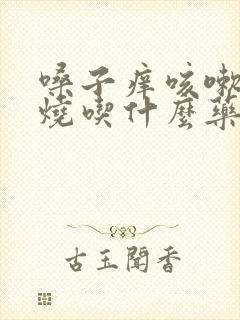 嗓子痒咳嗽
燒喫什麼藥
古玉聞香